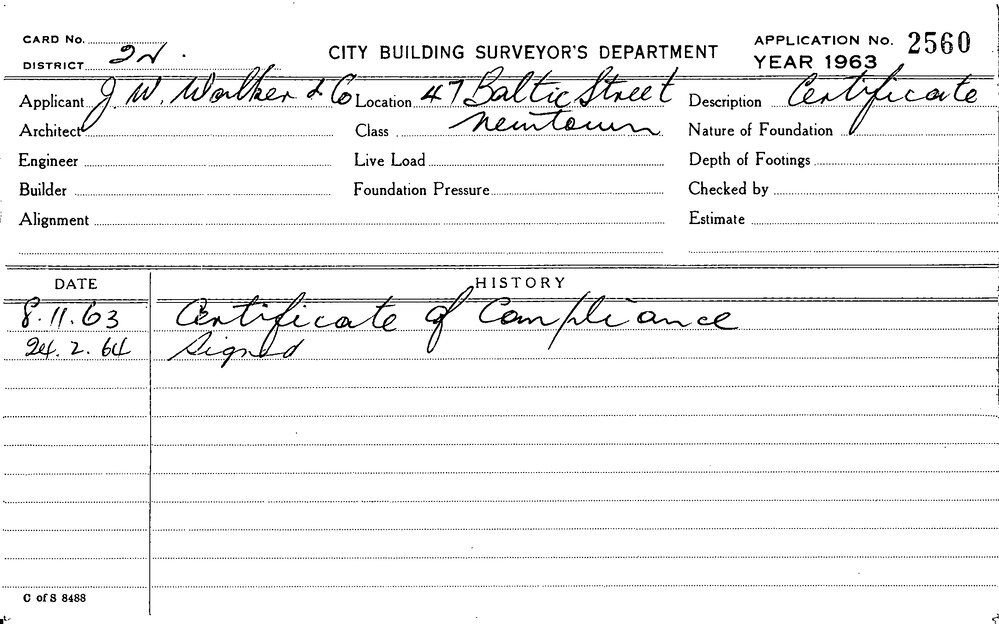 CARD No.
DISTRICT 2N.
CITY BUILDING SURVEYOR'S DEPARTMENT
APPLICATION No. 2560
YEAR 1963
Applicant J. W. Walker & Co Location 47 Baltic Street Description Certificate
Architect Class Newtown Nature of Foundation
Engineer Live Load Depth of Footings
Builder Foundation Pressure Checked by
Alignment Estimate
DATE HISTORY
8.11.63 Certificate of Compliance
24.2.64 Signed
C of S 8488